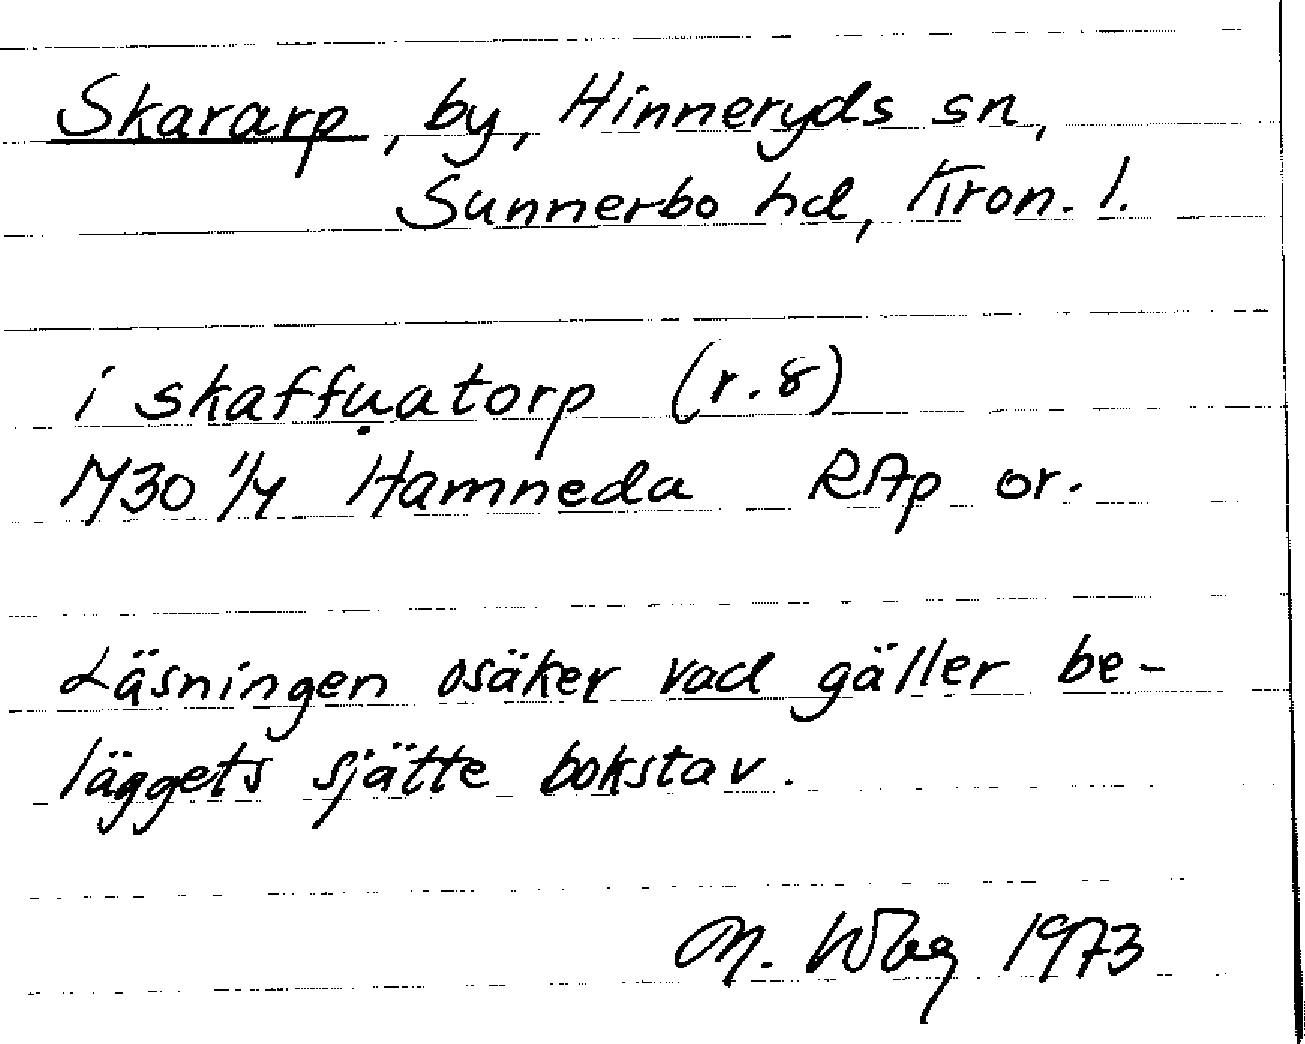 Skararp, by, Hinneryds sn,
Sunnerbo hd, Kron. l.
i skaffụatorp (r. 8)
1430 1/4 Hamneda RAp or.
Läsningen osäker vad gäller be-
läggets sjätte bokstav.
M. Wbg 1973